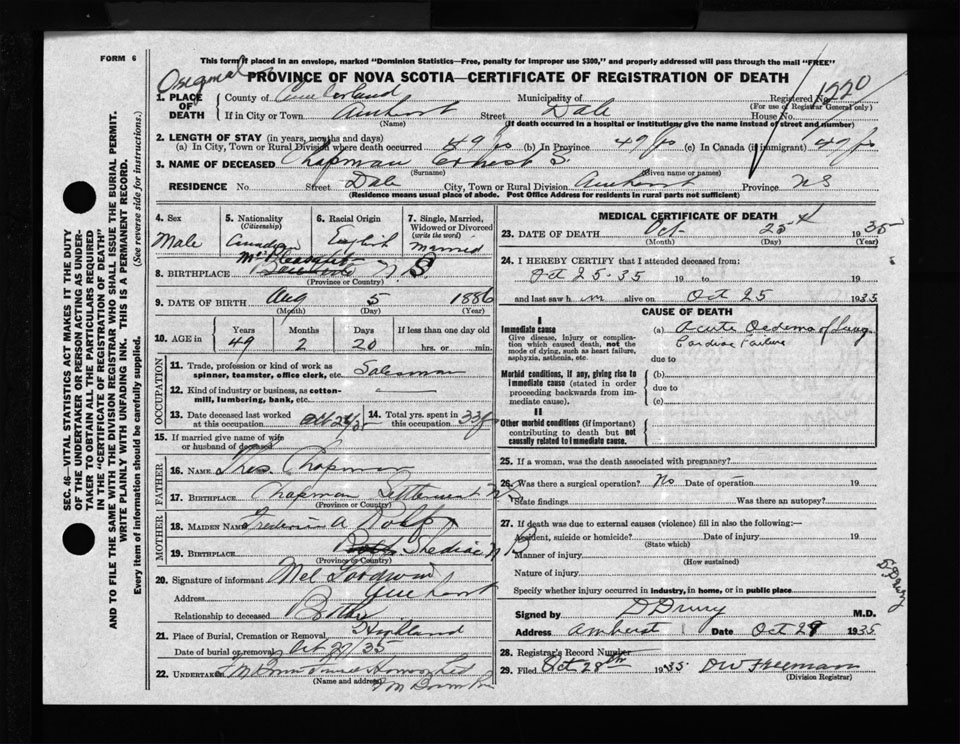 FORM 6
This form if placed in an envelope, marked "Dominion Statistics—Free, penalty for improper use $300," and properly addressed will pass through the mail "FREE"
Original
PROVINCE OF NOVA SCOTIA—CERTIFICATE OF REGISTRATION OF DEATH
1. PLACE OF DEATH
County of Cumberland Municipality of Registered No. 1220
(For use of Registrar General only)
If in City or Town Amherst Street Dale House No.
(Name) (If death occurred in a hospital or institution, give the name instead of street and number)
2. LENGTH OF STAY (in years, months and days)
(a) In City, Town or Rural Division where death occurred 49 yrs (b) In Province 49 yrs (c) In Canada (if immigrant) 49 yrs
3. NAME OF DECEASED Chapman Ernest S.
(Surname) (Given name or names)
RESIDENCE No. Street Dale City, Town or Rural Division Amherst Province NS
(Residence means usual place of abode. Post Office Address for residents in rural parts not sufficient)
4. Sex
Male
5. Nationality (Citizenship)
Canadian
6. Racial Origin
English
7. Single, Married, Widowed or Divorced (write the word)
married
8. BIRTHPLACE N S
(Province or Country)
9. DATE OF BIRTH Aug 5 1886
(Month) (Day) (Year)
10. AGE in
Years Months Days If less than one day old
49 2 20 hrs. or min.
OCCUPATION
11. Trade, profession or kind of work as spinner, teamster, office clerk, etc. Salesman
12. Kind of industry or business, as cotton-mill, lumbering, bank, etc.
13. Date deceased last worked at this occupation Oct 24/35
14. Total yrs. spent in this occupation 33 y
15. If married give name of wife or husband of deceased
FATHER
16. NAME Chapman
17. BIRTHPLACE Chapman Settlement N S
(Province or Country)
MOTHER
18. MAIDEN NAME A
19. BIRTHPLACE Shediac N B
(Province or Country)
20. Signature of informant Mel Goodwin
Address Amherst
Relationship to deceased
21. Place of Burial, Cremation or Removal Highland
Date of burial or removal Oct 27/35
22. UNDERTAKER
(Name and address)
MEDICAL CERTIFICATE OF DEATH
23. DATE OF DEATH Oct 25 1935
(Month) (Day) (Year)
24. I HEREBY CERTIFY that I attended deceased from:
Oct 25-35 19 to 19
and last saw him alive on Oct 25 1935
CAUSE OF DEATH
I
Immediate cause
Give disease, injury or complication which caused death, not the mode of dying, such as heart failure, asphyxia, asthenia, etc.
(a) Acute Oedema of Lung
Cardiac Failure
due to
Morbid conditions, if any, giving rise to immediate cause (stated in order proceeding backwards from immediate cause).
(b)
due to
(c)
II
Other morbid conditions (if important) contributing to death but not causally related to immediate cause.
25. If a woman, was the death associated with pregnancy?
26. Was there a surgical operation? No Date of operation 19
State findings Was there an autopsy?
27. If death was due to external causes (violence) fill in also the following:—
Accident, suicide or homicide? Date of injury 19
(State which)
Manner of injury
(How sustained)
Nature of injury
Specify whether injury occurred in industry, in home, or in public place
Signed by D Drury M.D.
Address Amherst Date Oct 29 1935
D Drury
28. Registrar's Record Number
29. Filed Oct 28th 1935 DW Freeman
(Division Registrar)
SEC. 46—VITAL STATISTICS ACT MAKES IT THE DUTY
OF THE UNDERTAKER OR PERSON ACTING AS UNDER-
TAKER TO OBTAIN ALL THE PARTICULARS REQUIRED
IN THE "CERTIFICATE OF REGISTRATION OF DEATH"
AND TO FILE THE SAME WITH THE DIVISION REGISTRAR WHO SHALL ISSUE THE BURIAL PERMIT.
WRITE PLAINLY WITH UNFADING INK. THIS IS A PERMANENT RECORD.
Every item of information should be carefully supplied. (See reverse side for instructions.)